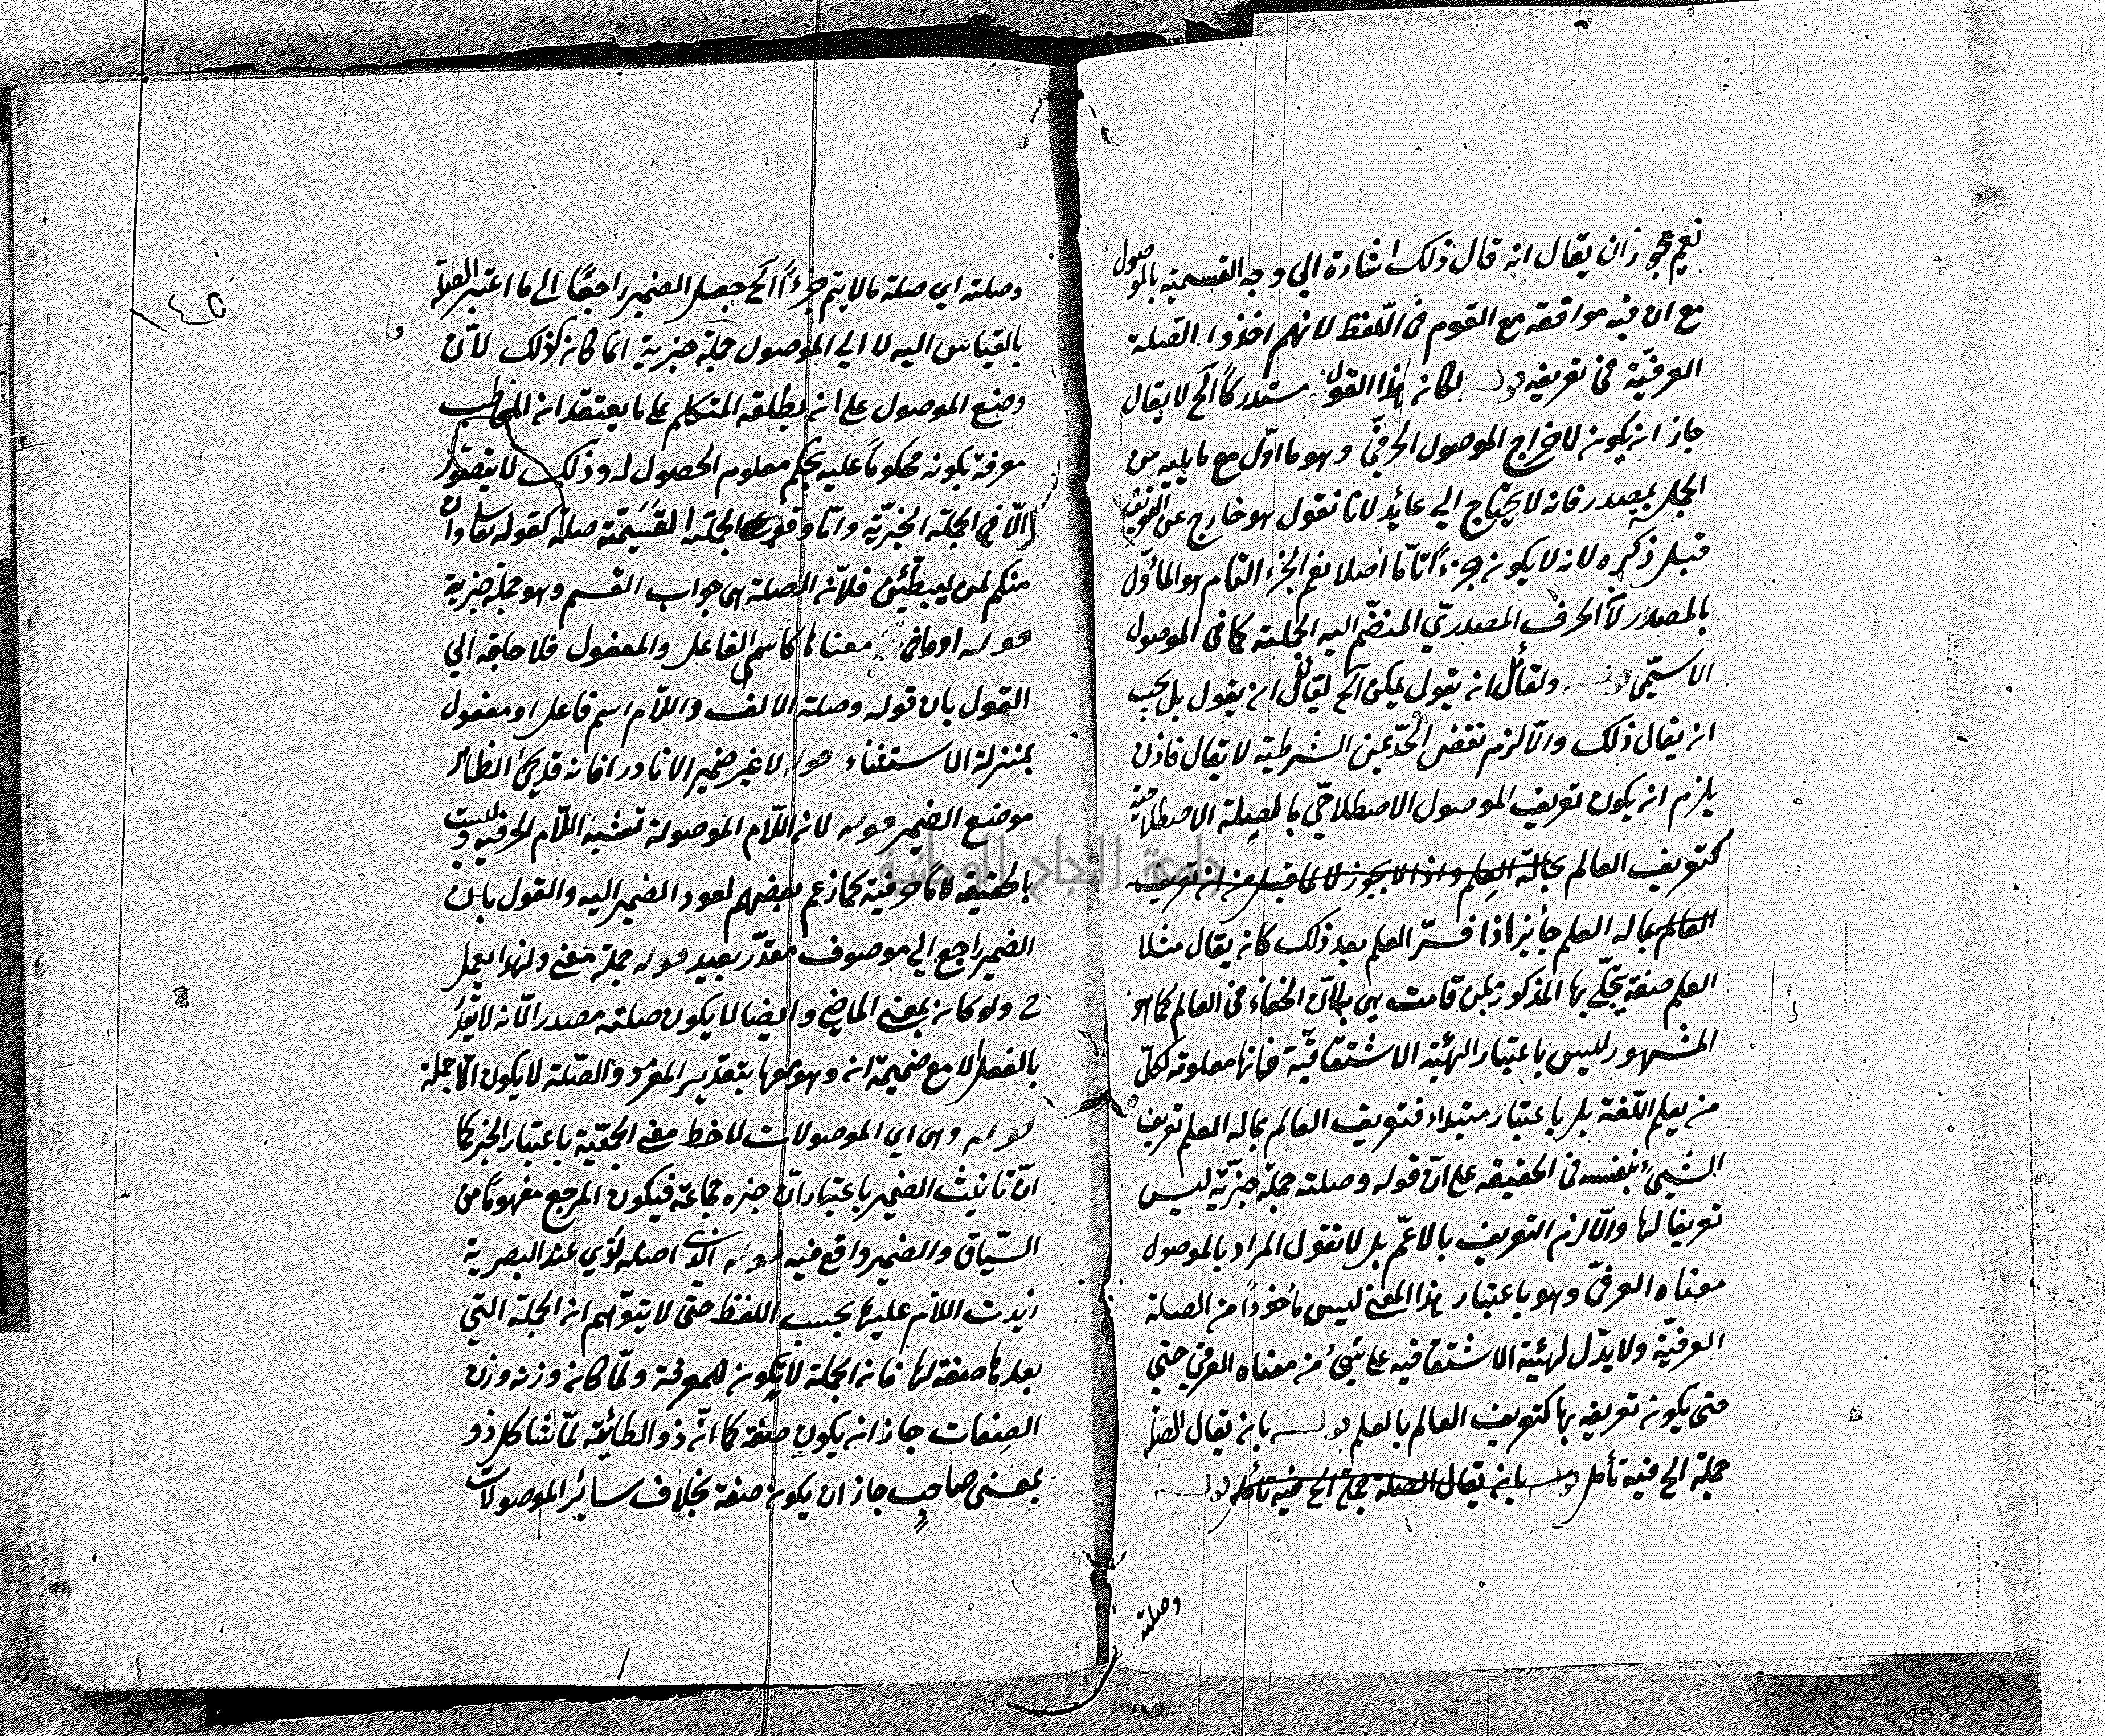 نعم يجوز ان يقال انه قال ذلك اشارة الي وجه التسمية بالموصول
مع ان فيه موافقة مع القوم في اللّفظ لانهم اخذوا الصّلة
العرفيّة في تعريفه قوله لكان هذا القول مستدركاً الخ لا يقال
جاز ان يكون لاخراج الموصول الحرفيّ وهو ما اوّل مع ما يليه من
الجمل بمصدر فانه لا يحتاج الي عائد لانا نقول هو خارج عن التعريف
قبل ذكره لانه لا يكون جزءً تامّا اصلا نعم الجزء التام هو المأوّل
بالمصدر لا الحرف المصدريّ المنضّم اليه الجملة كما في الموصول
الاسميّ قوله ولقائل ان يقول يمكن الخ لقائل ان يقول بل يجب
ان يقال ذلك والّا لزم نقض الحدّ بمن الشرطية لا يقال فاذن
يلزم ان يكون تعريف الموصول الاصطلاحّي بالصلة الاصطلاحيّة
كتعريف العالم بماله العلم واذا لا يجوز لا لما قيل من ان تعريف
العالم بماله العلم جائز اذا فسّر العلم بعد ذلك كان يقال مثلا
العلم صفة يتجلّي بها المذكور لمن قامت هي به لانّ الخفاء في العالم كما هو
المشهور ليس باعتبار الهيئة الاشتقاقيّة فانها معلومة لكلّ
من يعلم اللّغة بل باعتبار مبتداه فتعريف العالم بماله العلم تعريف
الشيئ بنفسه في الحقيقة علي انّ قوله وصلته جملة خبريّة ليس
تعريفا لها والّا لزم التعريف بالاعّم بل لا نقول المراد بالموصول
معناه العرفيّ وهو باعتبار هذا المعني ليس مأخوذاً من الصلة
العرفيّة ولا يدّل الهيئة الاشتقاقيه علي شيئ من معناه العرفي حتي
حتي يكون تعريفه بها كتعريف العالم بالعلم قوله بان يقال الصلة
جملة الخ فيه تأمل قوله بان يقال الصلة جملة الخ فيه تأمل قوله
وصلته
١٤٥
وصلته اي صلة ما لا يتم جزءاً الخ جعل الضمير راجعًا الي ما اعتبر الصلة
بالقياس اليه لا الي الموصول جملة خبرية انما كان كذلك لانّ
وضع الموصول علي ان يطلقه المتكلم علي ما يعتقد ان المخاطب
معرفة بكونه محكوماً عليه بحكم معلوم الحصول له وذلك لا يتصوّر
الّا في الجملة الخبريّة وامّا وقوع الجملة القسَميّة صلة كقوله تعالي وانّ
منكم لمن ليبطّئن فلانّ الصلة هي جواب القسم وهو جملة خبرية
قوله او ما في معناها كاسمي الفاعل والمفعول فلا حاجة الي
القول بان قوله وصلة الالف واللّام اسم فاعل او مفعول
بمنزلة الاستثناء قوله لا غير ضمير الا نادرا فانه قد يجئ الظاهر
موضع الضمير قوله لان اللّام الموصولة تشبه اللّام الحرفية وليست
بالحقيقة لاما حرفية كما زعم بعضهم لعود الضمير اليه والقول بان
الضمير راجع الي موصوف مقدّر بعيد قوله جملة معني ولهذا يعمل
ح ولو كان بمعني الماضي وايضا لا يكون صلته مصدر الّانه لا يقدّر
بالفعل الا مع ضميمة ان وهو معها بتقدير المفرد والصّلة لا يكون الّا جملة
قوله وهي اي الموصولات لاحظ معني الجمعيّة باعتبار الخبر كما
انّ تانيث الضمير باعتبار انّ خبره جماعة فيكون المرجع مفهوما من
السّياق والضمير واقع فيه قوله الذي اصله لذي عند البصرية
زيدت اللام عليها بحسب اللفظ حتي لا يتوّهم ان الجملة التي
بعدها صفة لها فان الجملة لا يكون للمعرفة ولمّا كان وزنه وزن
الصفات جاز ان يكون صفة كما انّ ذو الطائيّة لمّا شاكل ذو
بمعني صاحب جاز ان يكون صفة بخلاف سائر الموصولات
جامعة النجاح الوطنية